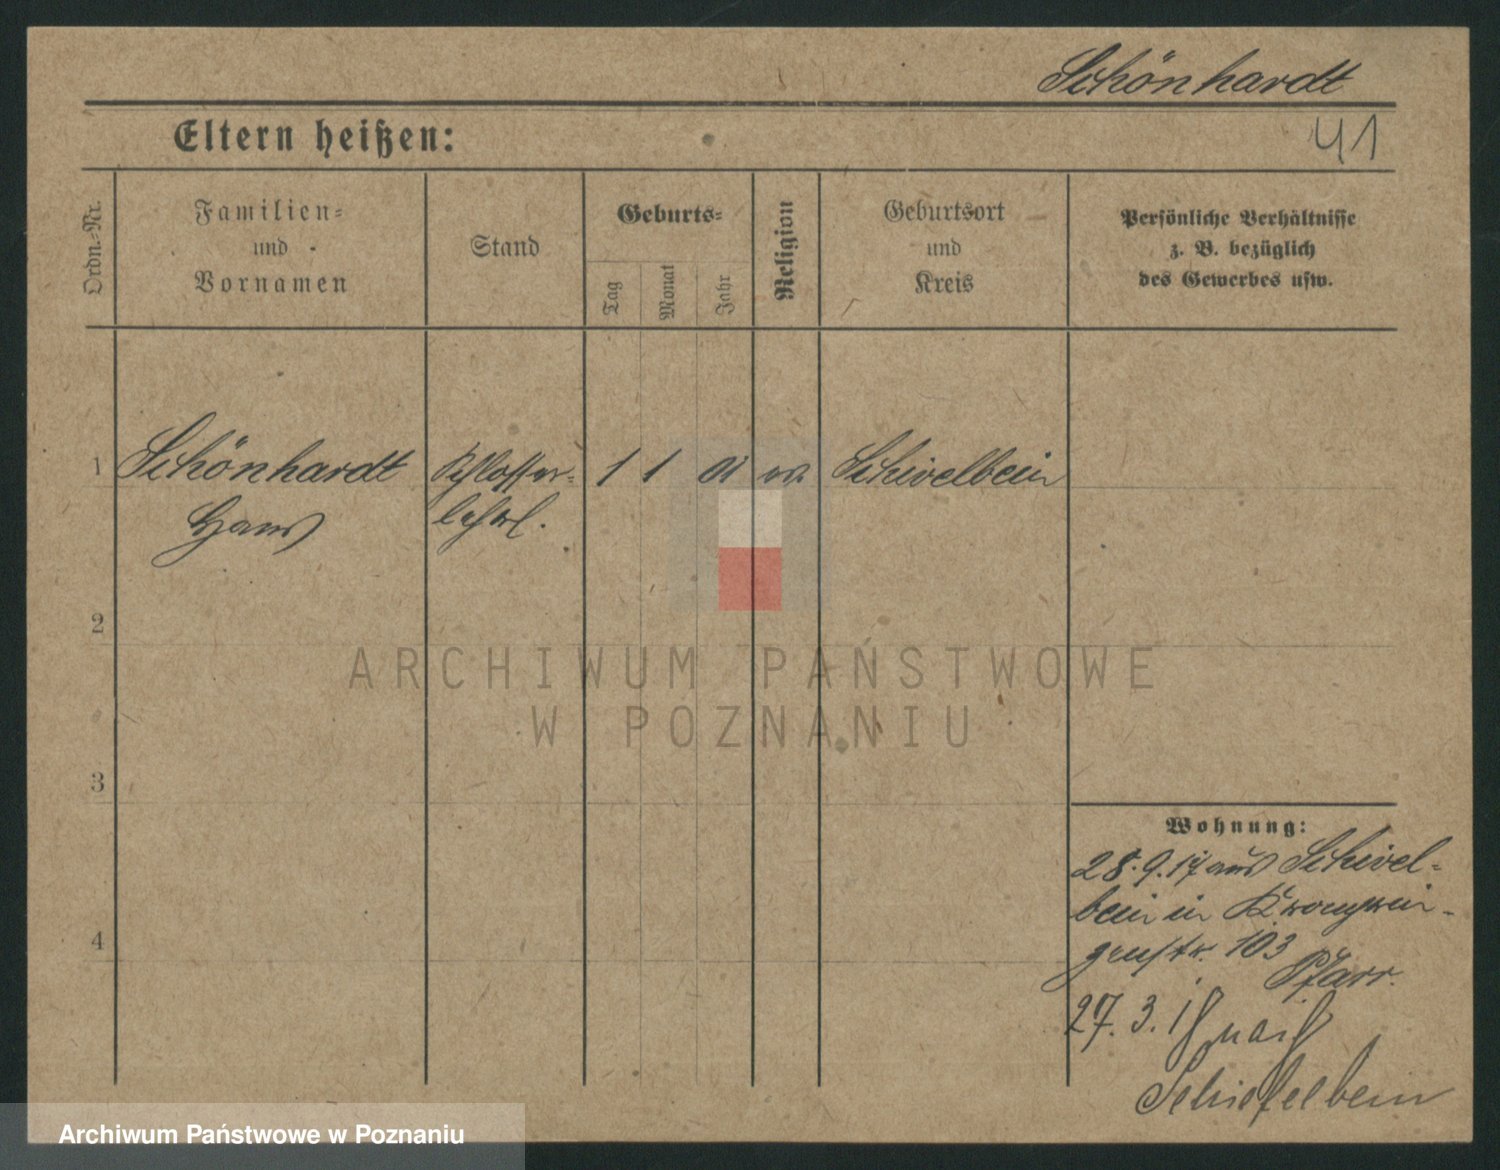 Schönhardt
Eltern heißen:
41
Ordn.-Nr.
Familien-
und
Vornamen
Stand
Geburts-
Tag
Monat
Jahr
Religion
Geburtsort
und
Kreis
Persönliche Verhältnisse
z. B. bezüglich
des Gewerbes usw.
1
Schönhardt
Hans
Schlosser-
lehrl.
1 1 01 ev. Schivelbein
2
3
4
Wohnung:
28.9.17 aus Schivel-
bein in Kronprin-
zenstr. 103
Pfarr.
27.3.18 nach
Schiefelbein
ARCHIWUM PAŃSTWOWE
W POZNANIU
Archiwum Państwowe w Poznaniu